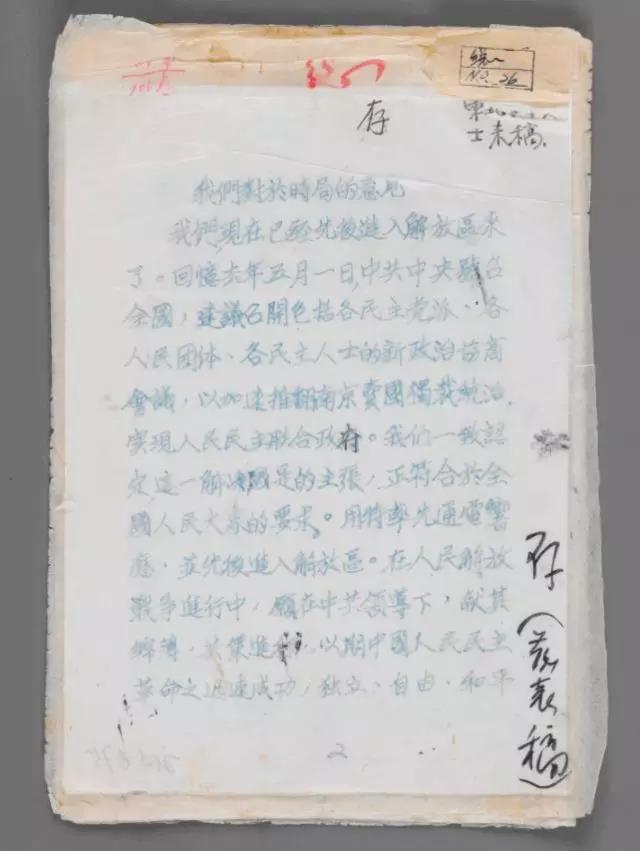 统一
No. 26
存
士来稿
我們對於時局的意見
我們,現在已經先後進入解放區來
了。回憶去年五月一日,中共中央號召
全國,建議召開包括各民主党派、各
人民団体、各民主人士的新政治協商
會議,以加速推翻南京賣國獨裁統治,
实現人民民主联合政府。我们一致認
定這一解決國是的主張,正符合於全
國人民大眾的要求。用特率先通電響
應,並先後進入解放區。在人民解放
戰爭進行中,願在中共領導下,献其
綿薄,共策進行,以期中國人民民主
革命之迅速成功,独立、自由、和平
存(發表稿)
2